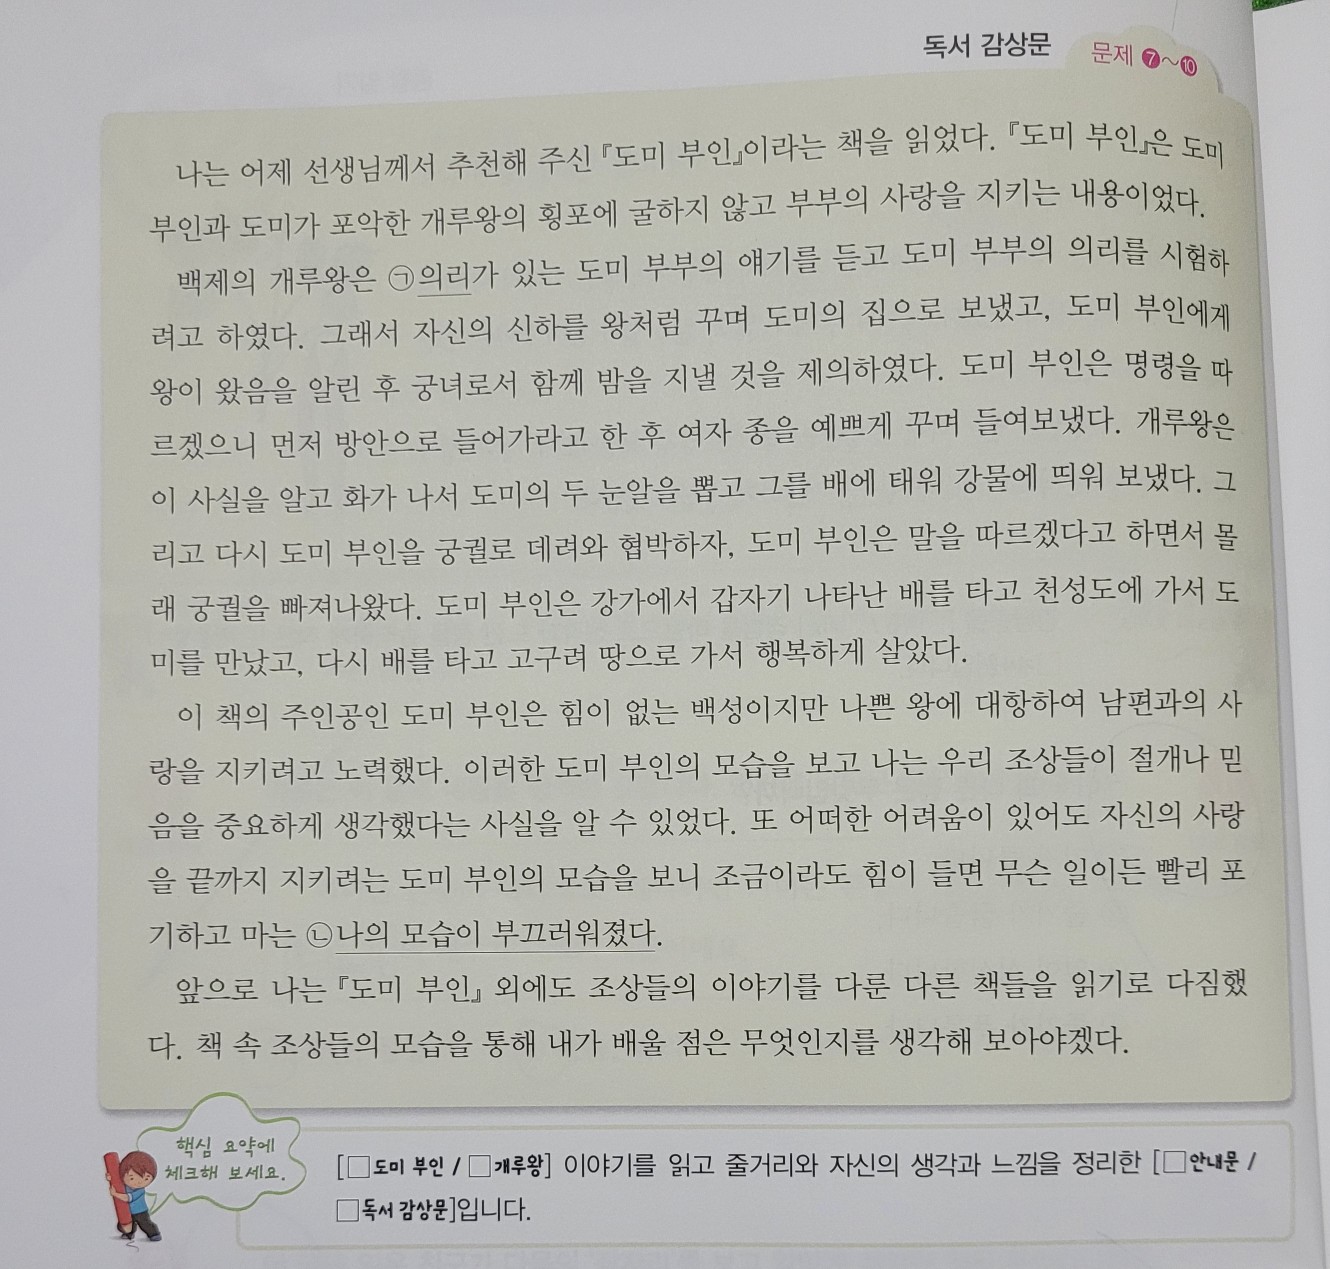 독서 감상문
문제 ⑦~⑩
나는 어제 선생님께서 추천해 주신 『도미 부인』이라는 책을 읽었다. 『도미 부인』은 도미
부인과 도미가 포악한 개루왕의 횡포에 굴하지 않고 부부의 사랑을 지키는 내용이었다.
백제의 개루왕은 ㉠의리가 있는 도미 부부의 얘기를 듣고 도미 부부의 의리를 시험하
려고 하였다. 그래서 자신의 신하를 왕처럼 꾸며 도미의 집으로 보냈고, 도미 부인에게
왕이 왔음을 알린 후 궁녀로서 함께 밤을 지낼 것을 제의하였다. 도미 부인은 명령을 따
르겠으니 먼저 방안으로 들어가라고 한 후 여자 종을 예쁘게 꾸며 들여보냈다. 개루왕은
이 사실을 알고 화가 나서 도미의 두 눈알을 뽑고 그를 배에 태워 강물에 띄워 보냈다. 그
리고 다시 도미 부인을 궁궐로 데려와 협박하자, 도미 부인은 말을 따르겠다고 하면서 몰
래 궁궐을 빠져나왔다. 도미 부인은 강가에서 갑자기 나타난 배를 타고 천성도에 가서 도
미를 만났고, 다시 배를 타고 고구려 땅으로 가서 행복하게 살았다.
이 책의 주인공인 도미 부인은 힘이 없는 백성이지만 나쁜 왕에 대항하여 남편과의 사
랑을 지키려고 노력했다. 이러한 도미 부인의 모습을 보고 나는 우리 조상들이 절개나 믿
음을 중요하게 생각했다는 사실을 알 수 있었다. 또 어떠한 어려움이 있어도 자신의 사랑
을 끝까지 지키려는 도미 부인의 모습을 보니 조금이라도 힘이 들면 무슨 일이든 빨리 포
기하고 마는 ㉡나의 모습이 부끄러워졌다.
앞으로 나는 『도미 부인』 외에도 조상들의 이야기를 다룬 다른 책들을 읽기로 다짐했
다. 책 속 조상들의 모습을 통해 내가 배울 점은 무엇인지를 생각해 보아야겠다.
핵심 요약에
체크해 보세요.
[□도미 부인 / □개루왕] 이야기를 읽고 줄거리와 자신의 생각과 느낌을 정리한 [□안내문 /
□독서 감상문]입니다.